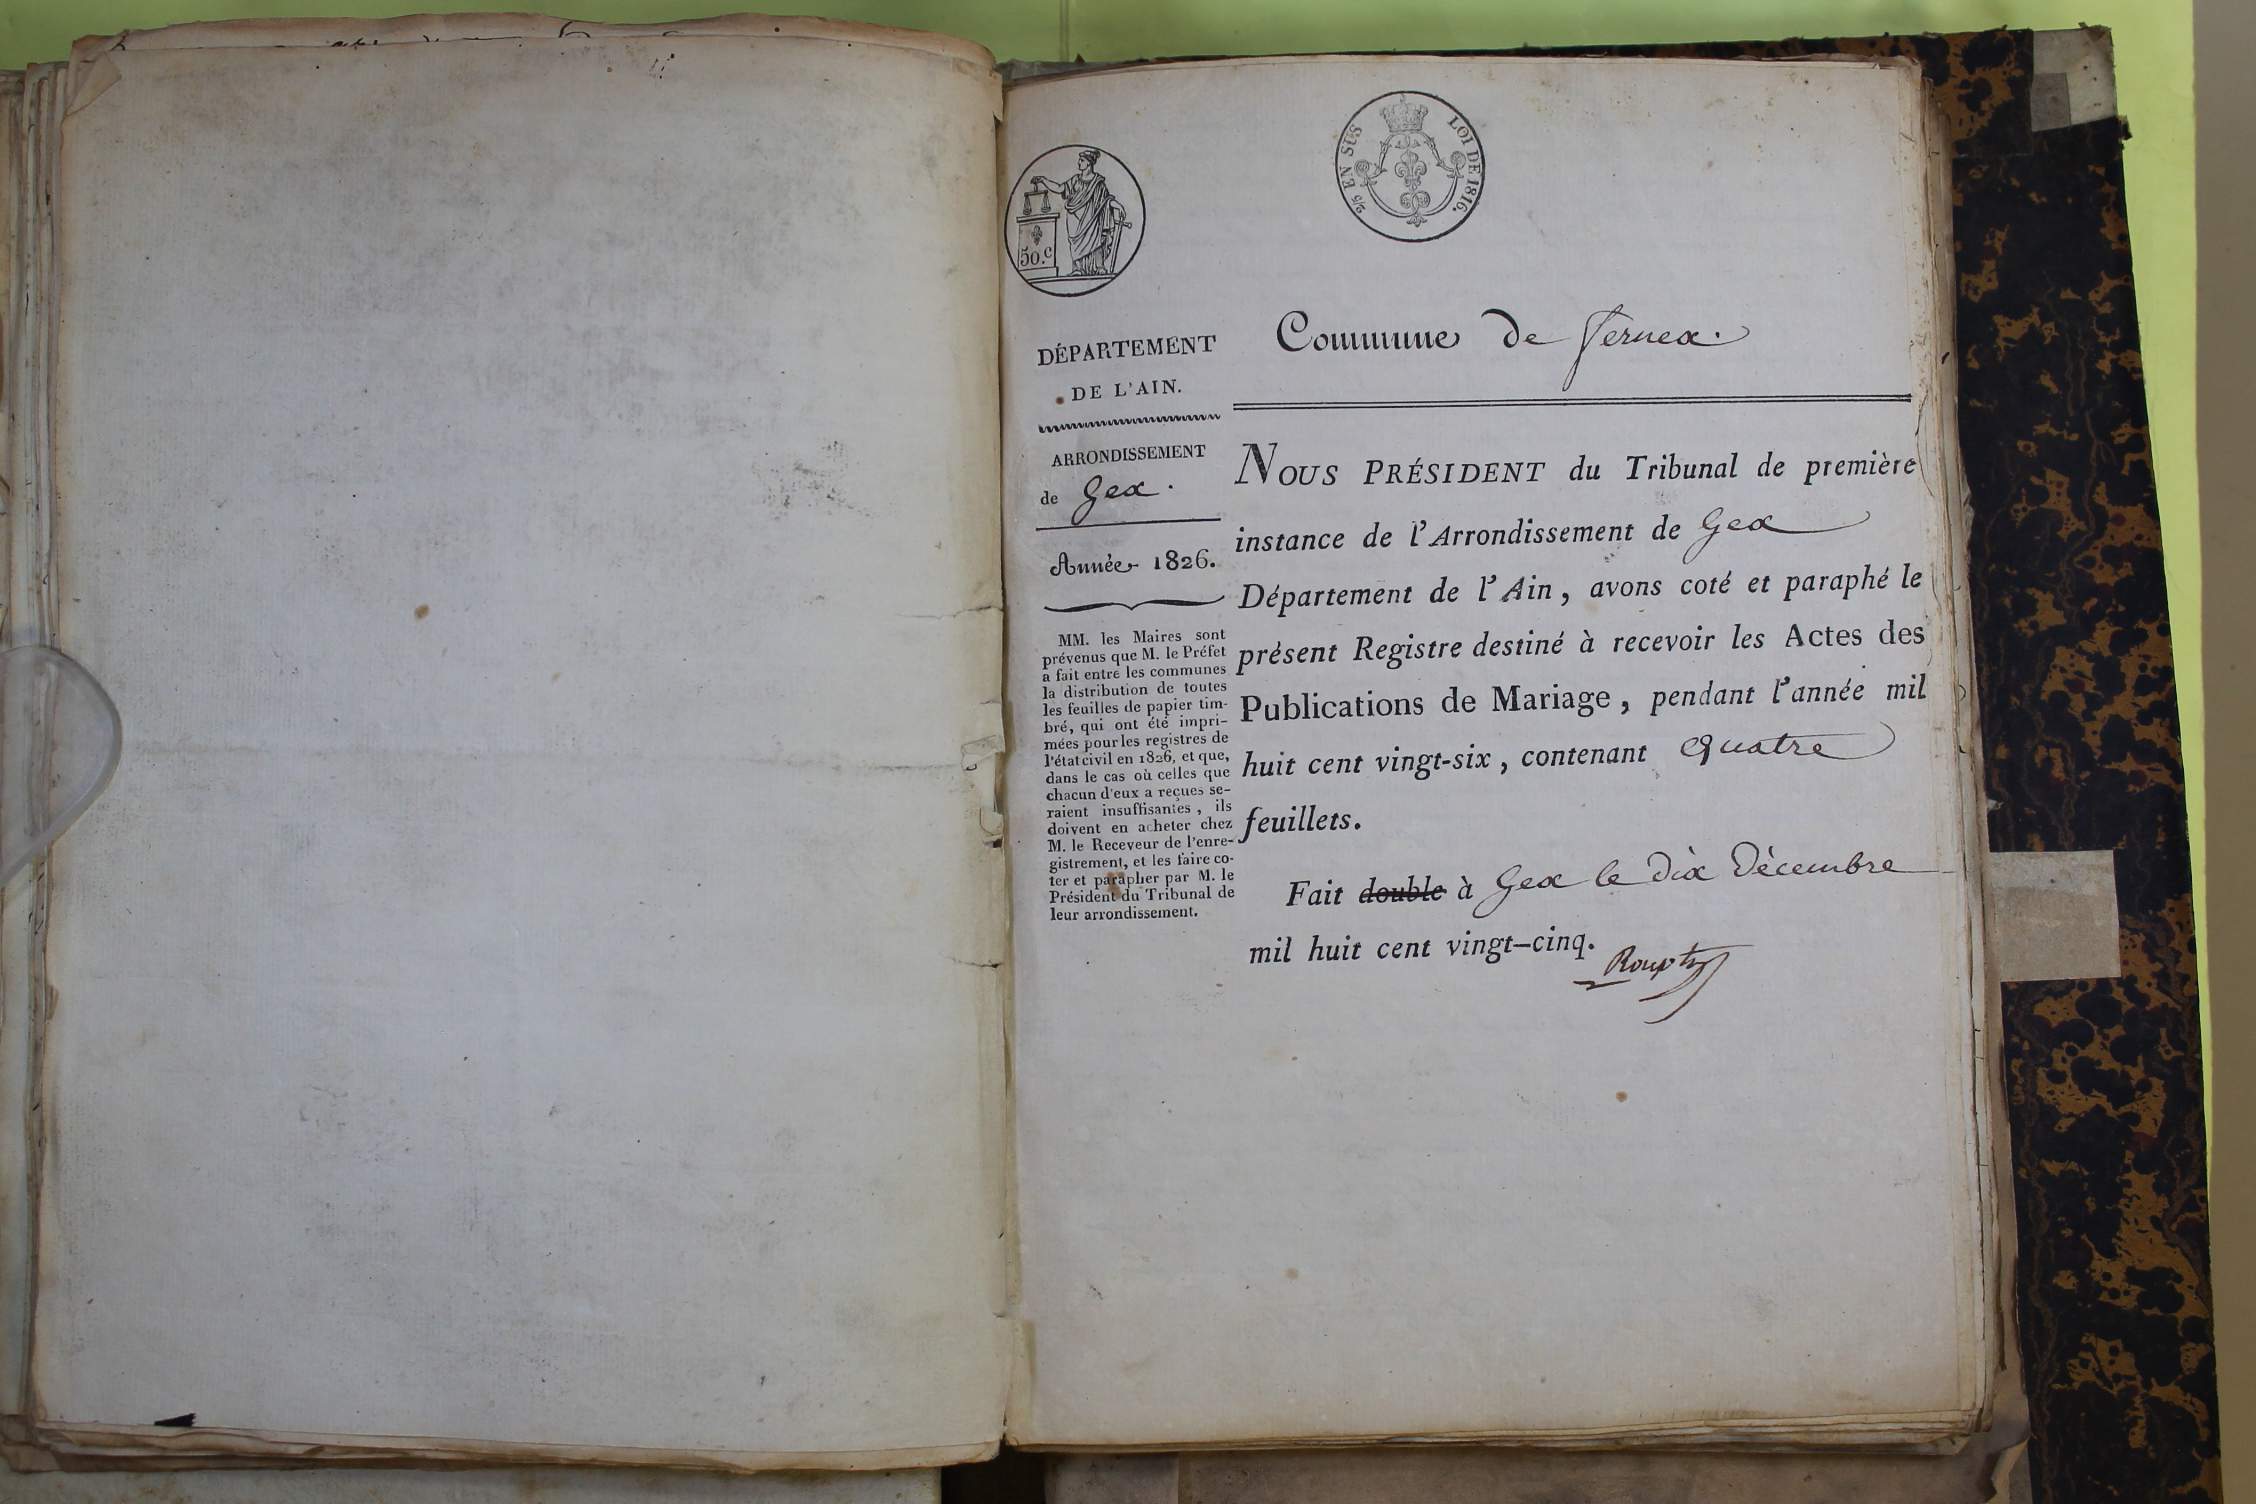 50.c
2/5 EN SUS
LOI DE 1816.
DÉPARTEMENT
DE L'AIN.
ARRONDISSEMENT
de Gex.
Année 1826.
MM. les Maires sont
prévenus que M. le Préfet
a fait entre les communes
la distribution de toutes
les feuilles de papier tim-
bré, qui ont été impri-
mées pour les registres de
l'état civil en 1826, et que,
dans le cas où celles que
chacun d'eux a reçues se-
raient insuffisantes, ils
doivent en acheter chez
M. le Receveur de l'enre-
gistrement, et les faire co-
ter et parapher par M. le
Président du Tribunal de
leur arrondissement.
Commune de Fernex.
NOUS PRÉSIDENT du Tribunal de première
instance de l'Arrondissement de Gex
Département de l'Ain, avons coté et paraphé le
présent Registre destiné à recevoir les Actes des
Publications de Mariage, pendant l'année mil
huit cent vingt-six, contenant quatre
feuillets.
Fait double à Gex le dix Décembre
mil huit cent vingt-cinq.